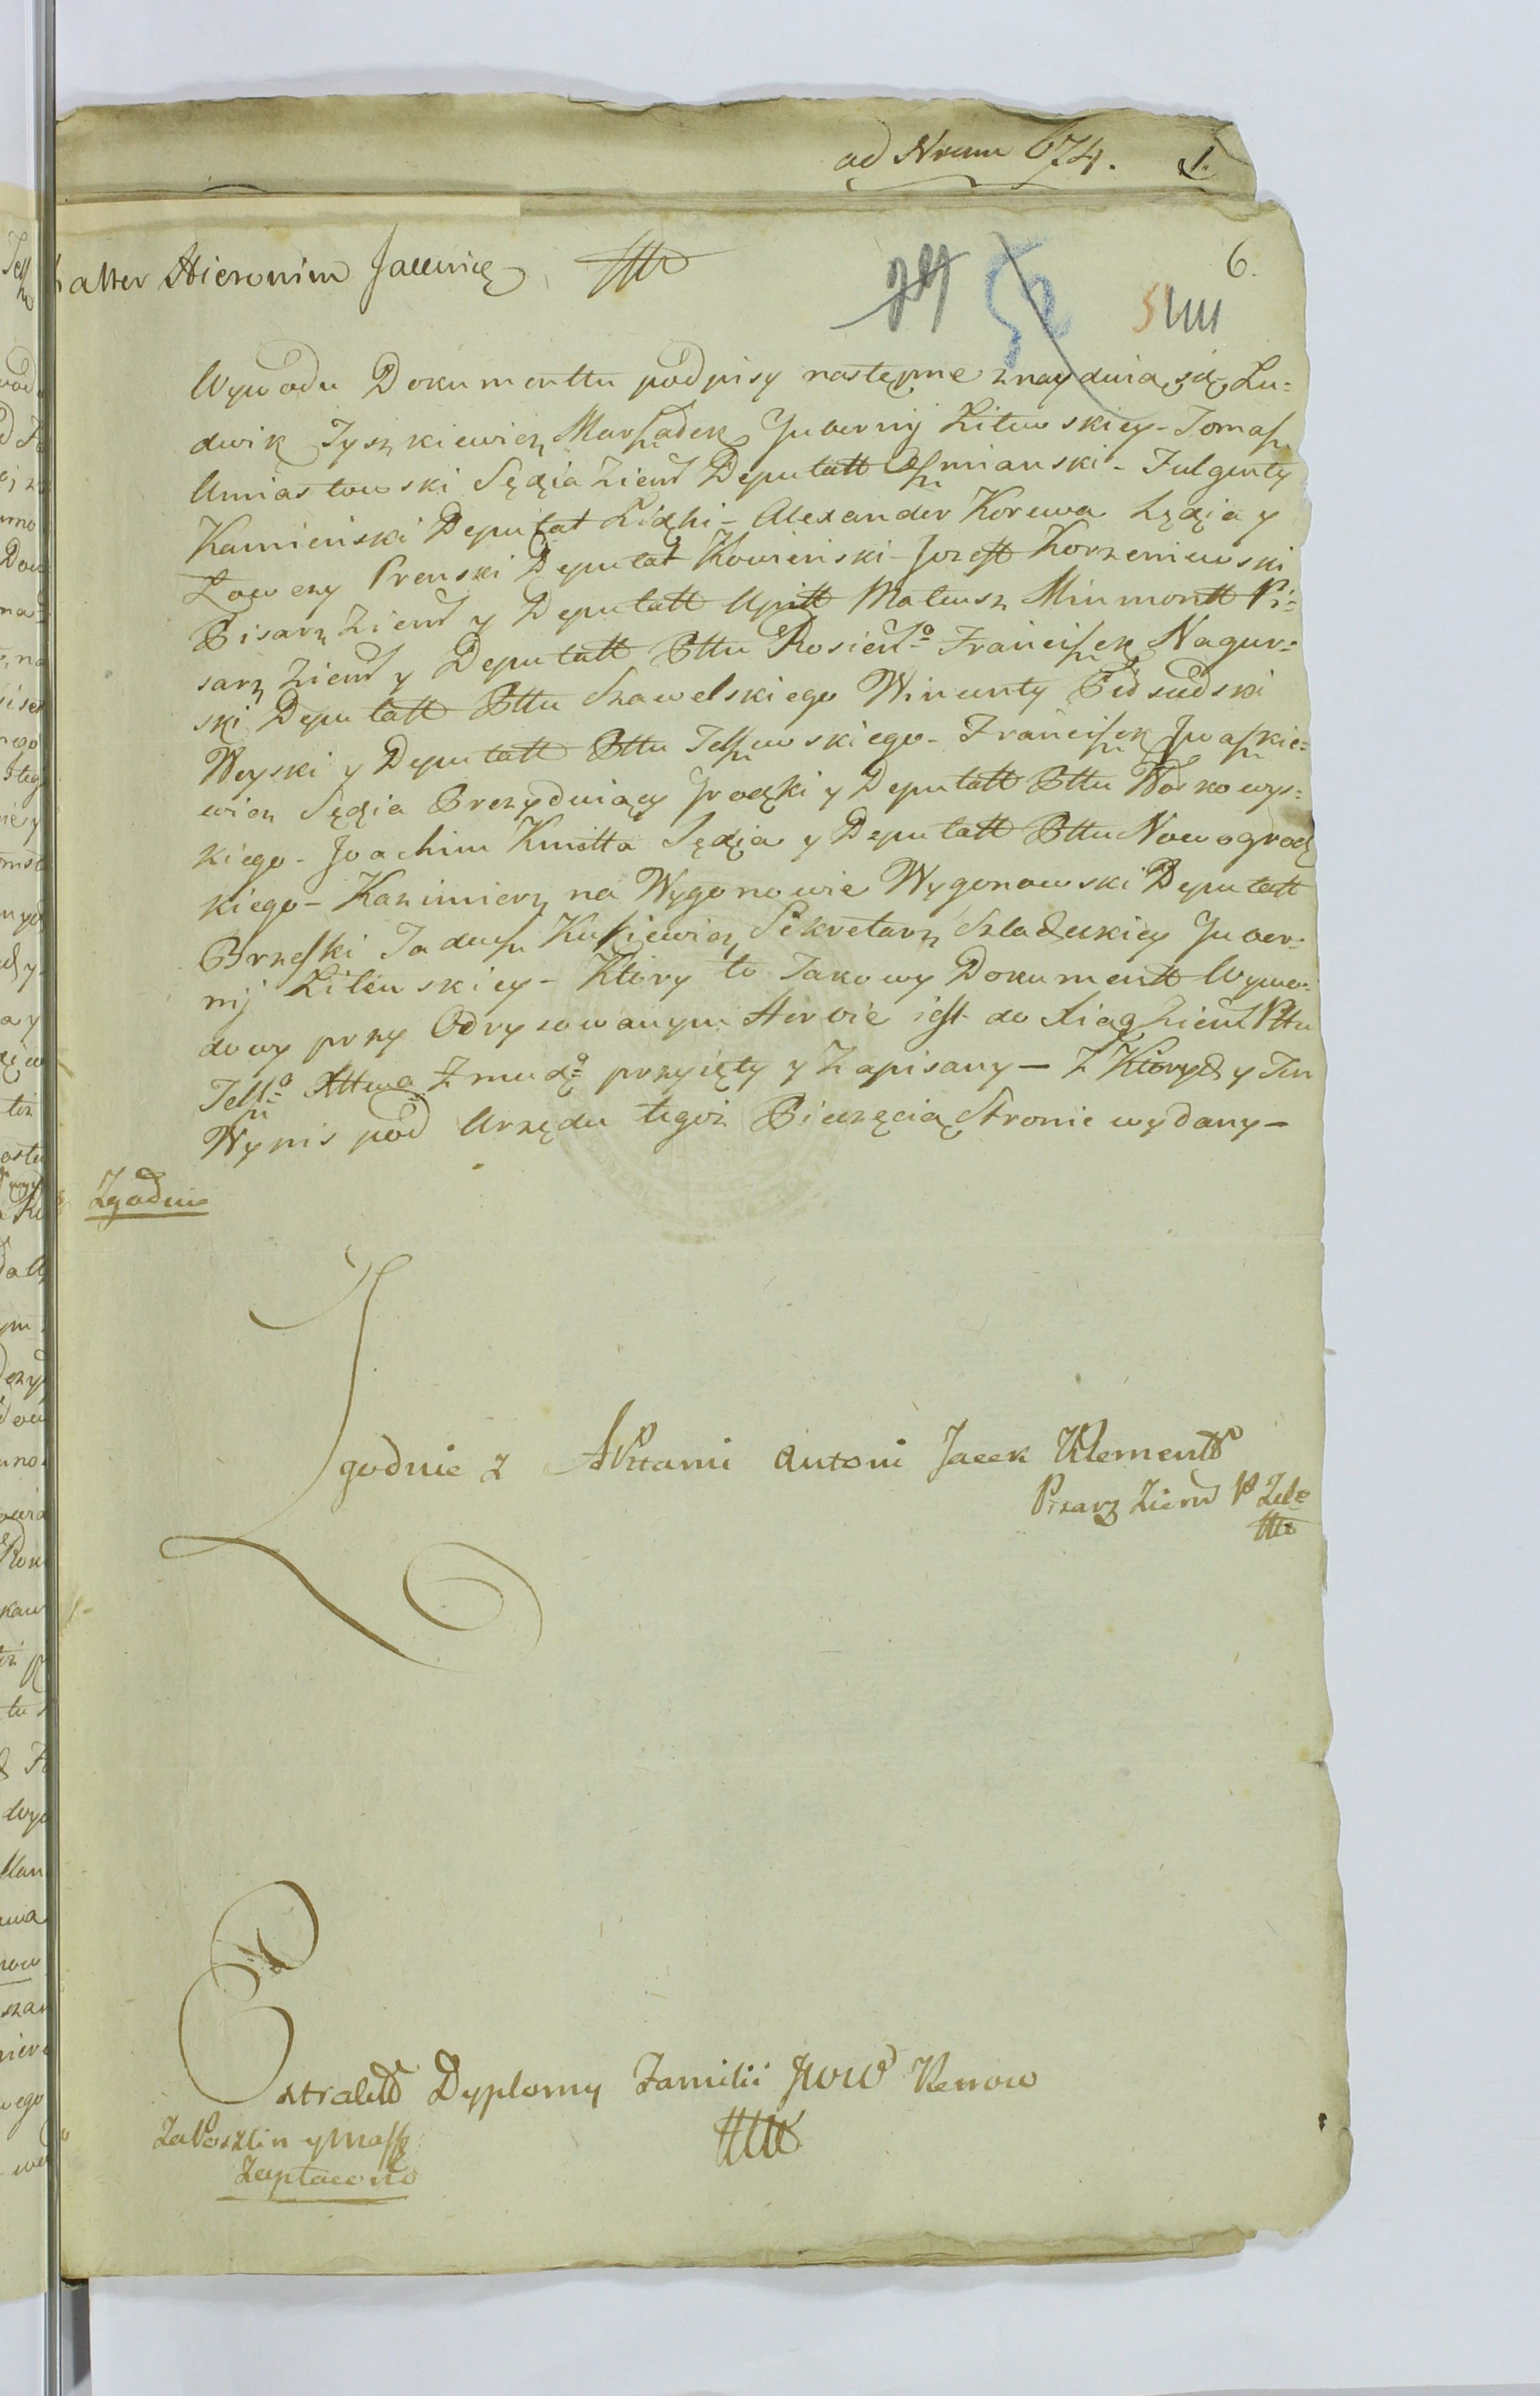 ad Nrum 674. 1.
6.
Hieronim
Wywodu Dokumenttu podpisy następne znayduią się Lu=
dwik Tyszkiewicz Marszałek Gubernij Litewskiey - Tomasz
Umiastowski Sędzia Ziem Deputatt Oszmianski - Fulgenty
Kamieński Deputat Lidzki - Alexander Korewa Sędzia y
Łowczy Prenski Deputat Kowieński - Jozeff Korzeniewski
Pisarz Ziem y Deputatt Upitt Mateusz Minmontt Pi=
sarz Ziem y Deputatt Pttu Rosieńo Franciszek Nagur=
ski Deputatt Pttu Szawelskiego Wincenty Piłsudski
Woyski y Deputatt Pttu Telszewskiego - Franciszek Iwaszkie=
wicz Sędzia Prezyduiący Grodzki y Deputatt Pttu Wołkowys=
kiego - Joachim Kmitta Sędzia y Deputatt Pttu Nowogrodz
kiego - Kazimierz na Wygonowie Wygonowski Deputatt
Brzeski Tadeusz Sekretarz Szlacheckiey Guber=
nij Litewskiey - Ktory to takowy Dokumentt Wywo=
dowy przy Odrysowanym Herbie iest do Xiąg Ziem Pttu
Telszo Xttwa Zmudzo przyięty y Zapisany - Z Ktorych y Ten
Wypis pod Urzędu tegoż Pieczęcią Stronie wydany -
Zgodno
Zgodnie z Aktami Antoni Jacek Klementt
Pisarz Ziem P Tel
Extraktt Dyplomy Familii Renow
Za Poszlin y
Zapłacono